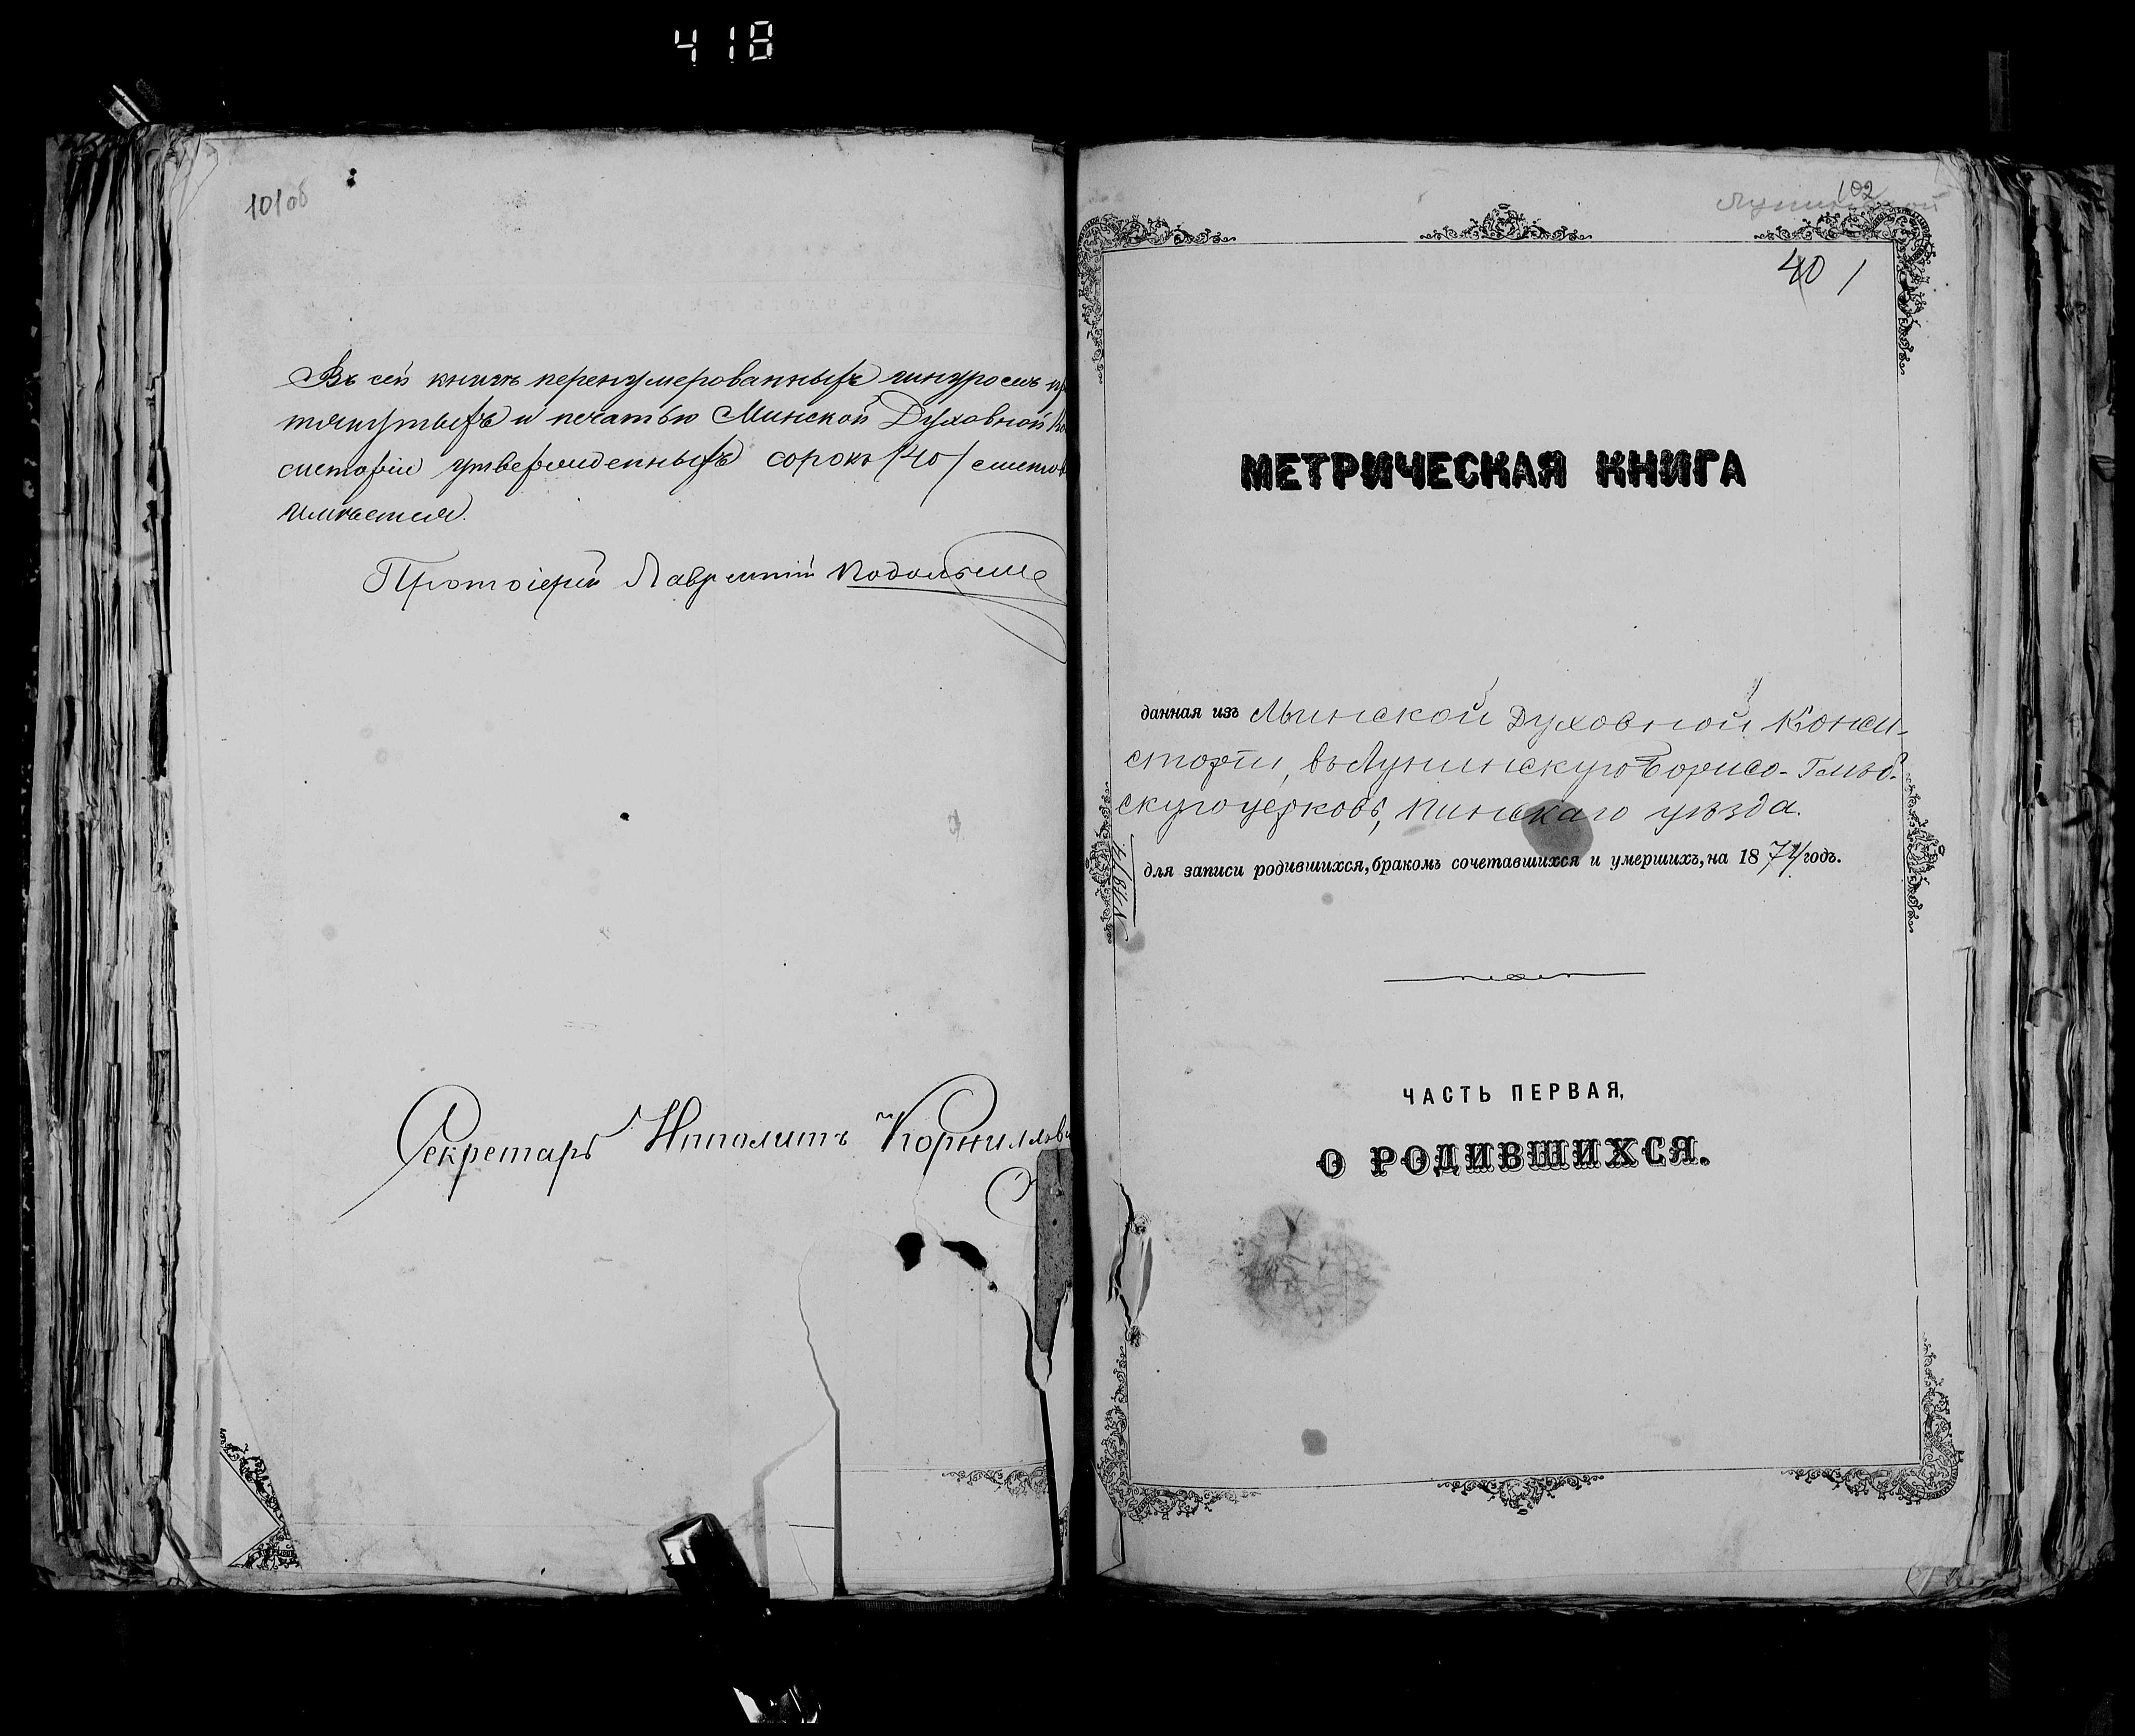 418
101об
Въ сей книгѣ перенумерованныхъ шнуромъ
тянутыхъ и печатью Минской Духовной
систоріи утвержденныхъ сорокъ /40/ листовъ
имѣется.
Протоіерей Лаврентій
Секретарь Ипполитъ
102
40 1
МЕТРИЧЕСКАЯ КНИГА
данная изъ Минской Духовной Конси-
сторіи, въ Лунинскую Борисо-Глѣб-
скую церковь, Пинскаго уѣзда.
для записи родившихся, бракомъ сочетавшихся и умершихъ, на 1874 годъ.
ЧАСТЬ ПЕРВАЯ,
О РОДИВШИХСЯ.